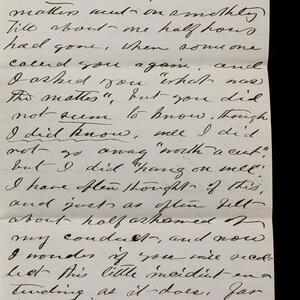 matters went on smoothly
till about one half hours
had gone, when some one
called you again, and
I asked you "what was
the matter", but you did
not seem to know, though
I did know, well I did
not go away "worth a cent"
but I did "hang on well"
I have often thought of this,
and just as often felt
about half ashamed of
my conduct, and now
I wonder if you will recol-
lect this little incident in-
truding as it does, far